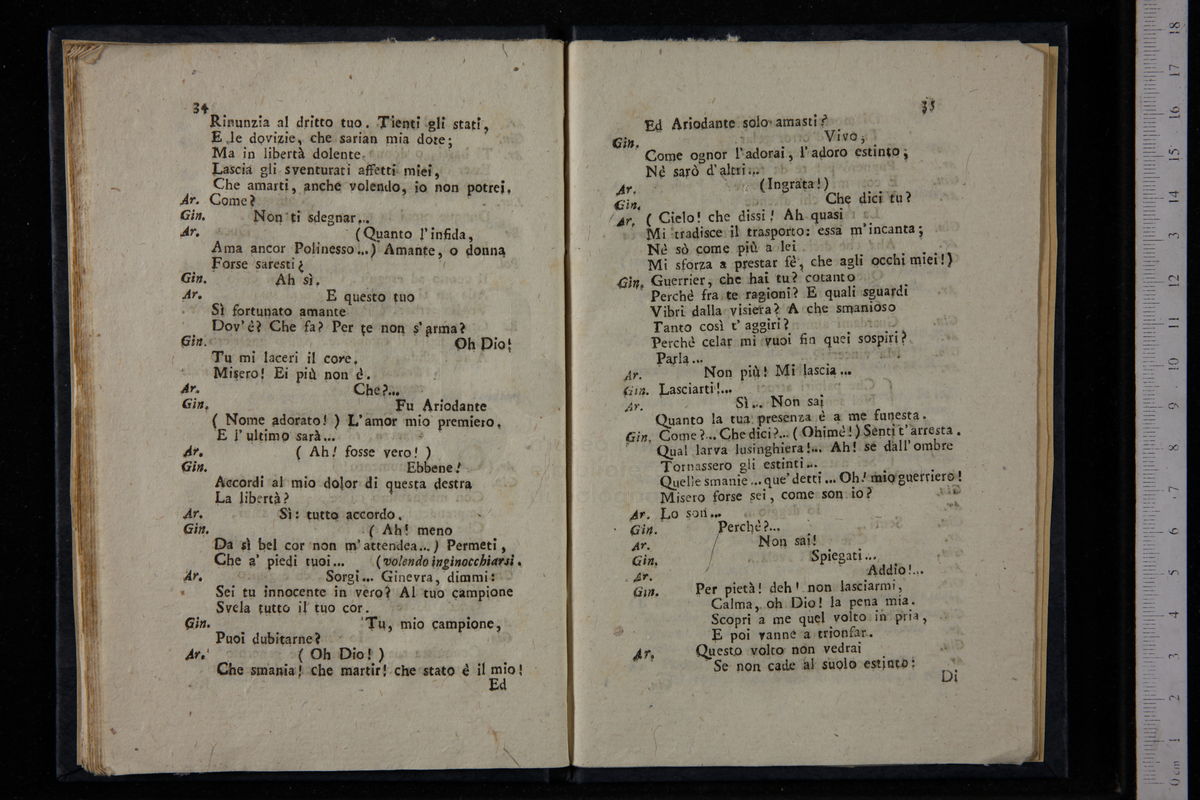 34
Rinunzia al dritto tuo. Tienti gli stati,
E le dovizie, che sarian mia dote;
Ma in libertà dolente
Lascia gli sventurati affetti miei,
Che amarti, anche volendo, io non potrei.
Ar. Come?
Gin. Non ti sdegnar...
Ar. (Quanto l'infida,
Ama ancor Polinesso...) Amante, o donna
Forse saresti?
Gin. Ah sì.
Ar. E questo tuo
Sì fortunato amante
Dov'è? Che fa? Per te non s'arma?
Gin. Oh Dio!
Tu mi laceri il core.
Misero! Ei più non è.
Ar. Che?...
Gin. Fu Ariodante
( Nome adorato! ) L'amor mio premiero,
E l'ultimo sarà...
Ar. ( Ah! fosse vero! )
Gin. Ebbene!
Accordi al mio dolor di questa destra
La libertà?
Ar. Sì: tutto accordo.
Gin. ( Ah! meno
Da sì bel cor non m'attendea...) Permeti,
Che a' piedi tuoi... (volendo inginocchiarsi.
Ar. Sorgi... Ginevra, dimmi:
Sei tu innocente in vero? Al tuo campione
Svela tutto il tuo cor.
Gin. Tu, mio campione,
Puoi dubitarne?
Ar. ( Oh Dio! )
Che smania! che martir! che stato è il mio!
Ed
35
Ed Ariodante solo amasti?
Gin. Vivo,
Come ognor l'adorai, l'adoro estinto;
Nè sarò d'altri...
Ar. (Ingrata!)
Gin. Che dici tu?
Ar. ( Cielo! che dissi! Ah quasi
Mi tradisce il trasporto: essa m'incanta;
Nè sò come più a lei
Mi sforza a prestar fè, che agli occhi miei!)
Gin. Guerrier, che hai tu? cotanto
Perchè fra te ragioni? E quali sguardi
Vibri dalla visiera? A che smanioso
Tanto così t'aggiri?
Perchè celar mi vuoi fin quei sospiri?
Parla...
Ar. Non più! Mi lascia...
Gin. Lasciarti!...
Ar. Sì... Non sai
Quanto la tua presenza è a me funesta.
Gin. Come?... Che dici?... ( Ohimè!) Senti t'arresta.
Qual larva lusinghiera!... Ah! se dall'ombre
Tornassero gli estinti...
Quelle smanie... que' detti... Oh! mio guerriero!
Misero forse sei, come son io?
Ar. Lo son...
Gin. Perchè?...
Ar. Non sai!
Gin. Spiegati...
Ar. Addio!...
Gin. Per pietà! deh! non lasciarmi,
Calma, oh Dio! la pena mia.
Scopri a me quel volto in pria,
E poi vanne a trionfar.
Ar. Questo volto non vedrai
Se non cade al suolo estinto:
Di